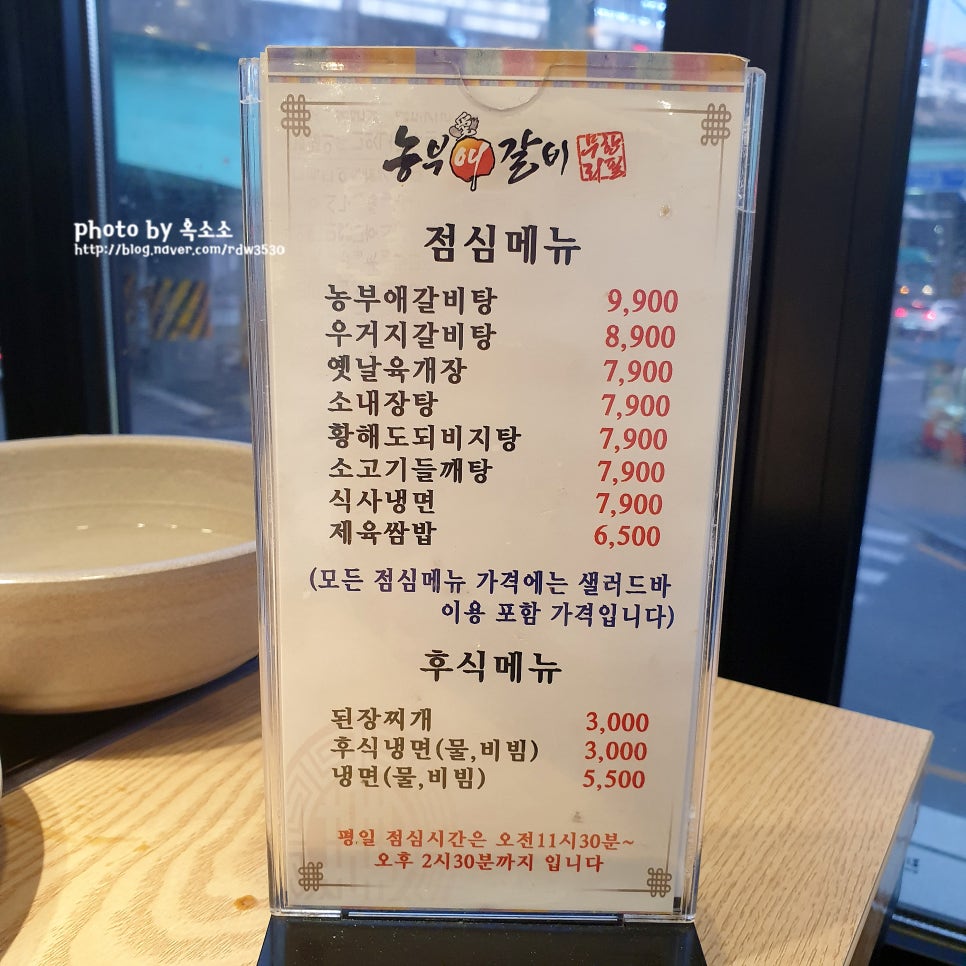 농부애갈비 무한리필
photo by 혹소소
http://blog.naver.com/rdw3530
점심메뉴
농부애갈비탕 9,900
우거지갈비탕 8,900
옛날육개장 7,900
소내장탕 7,900
황해도되비지탕 7,900
소고기들깨탕 7,900
식사냉면 7,900
제육쌈밥 6,500
(모든 점심메뉴 가격에는 샐러드바
이용 포함 가격입니다)
후식메뉴
된장찌개 3,000
후식냉면(물,비빔) 3,000
냉면(물,비빔) 5,500
평일 점심시간은 오전11시30분~
오후 2시30분까지 입니다